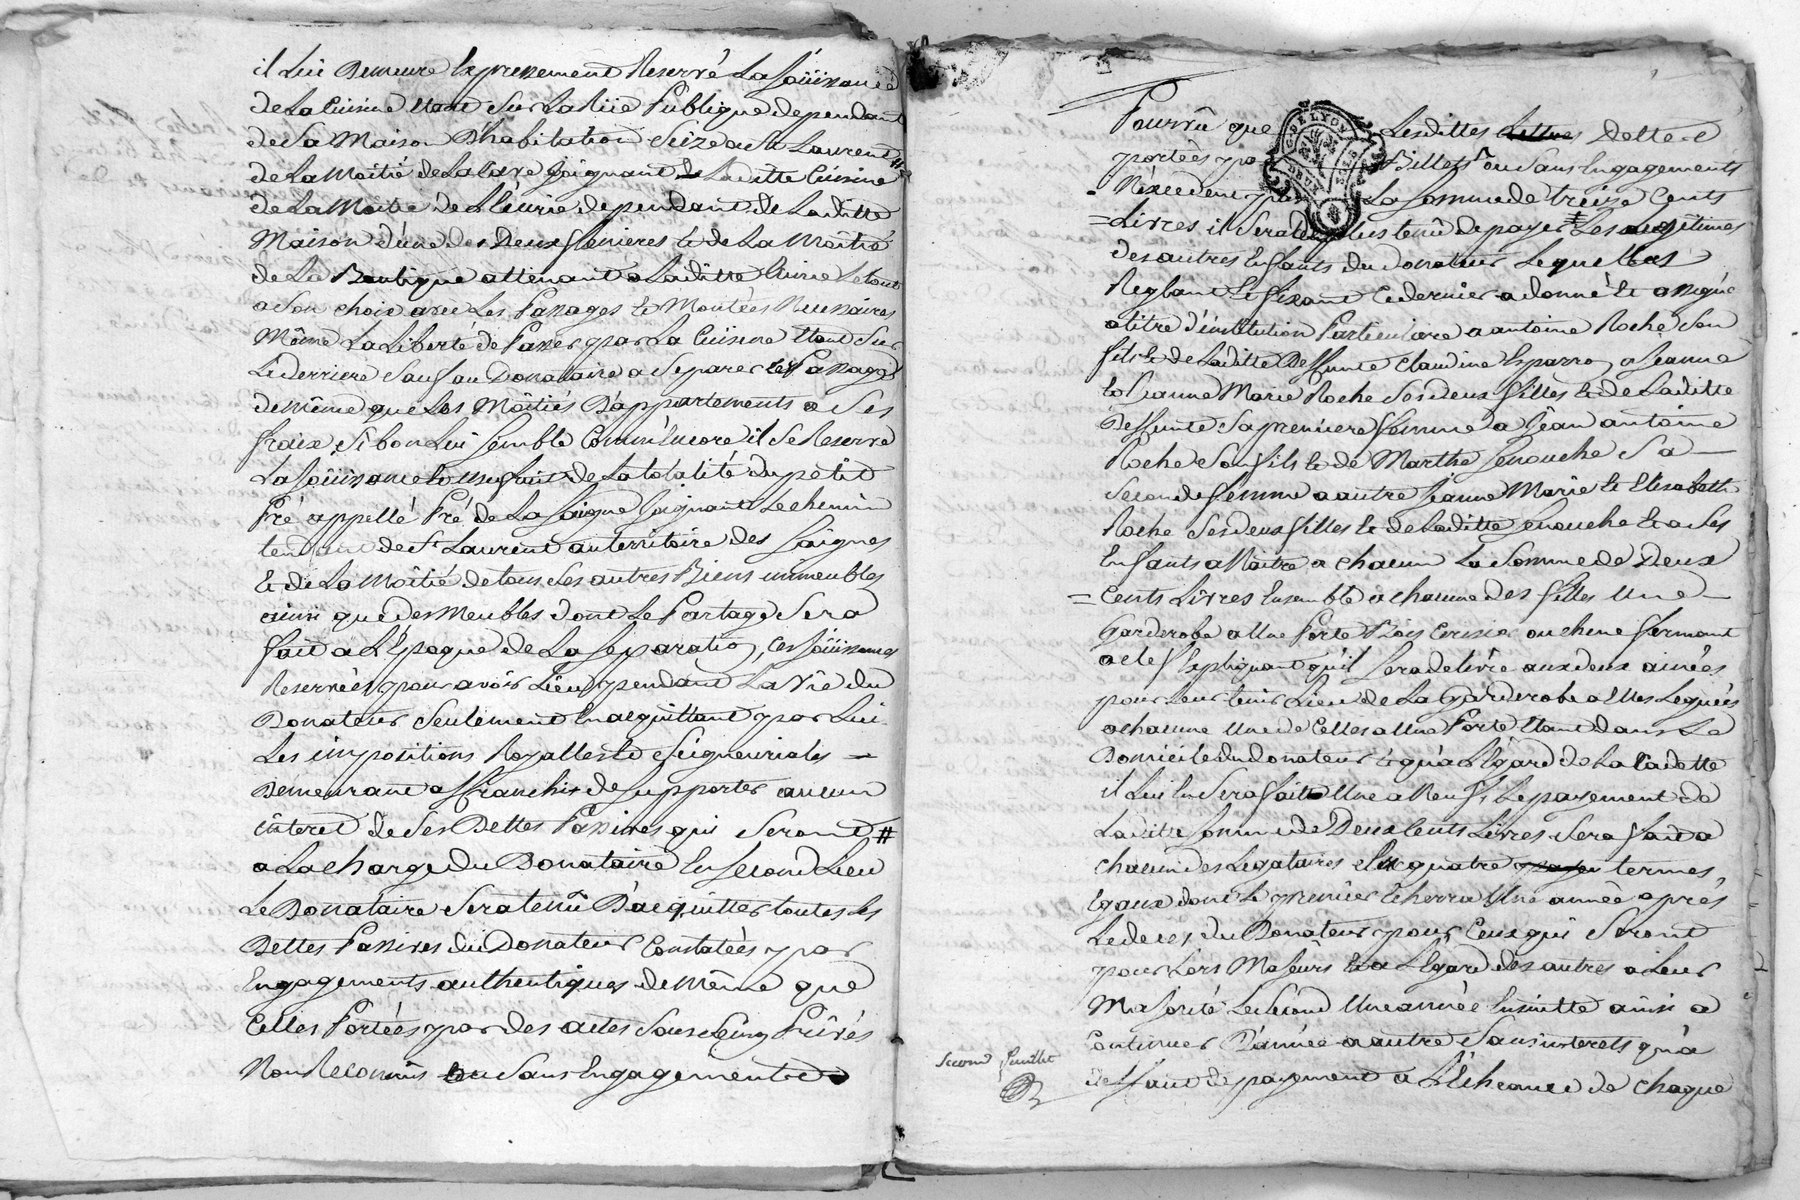 il Lui Demeure Expressement Reservé La Joüissance
de La Cuisine Etant Sur La Rüe Publique dependant
de Sa Maison D'habitation Scize a St Laurent
de La Moitié de La Cave Joignant Laditte Cuisine
de La Moitié de L'Ecurie dependant de Laditte
Maison d'une des Deux fenieres & de La Moitié
de La Boutique attenant a Laditte Cuisine Le tout
a Son choix avec Les Passages & Montées Necessaires
Même La Liberté de Passer par La Cuisine Etant Sur
Le derriere Sauf au Donataire a Separer Les Passages
de même que Les Moitiés D'appartements a Ses
fraix Si bon Lui Semble Comm'Encore il Se Reserve
La Joüissance & Usufruit de La totalité du petit
Pré appellé Pré de La Saigne Joignant Le chemin
tendant de St Laurent au territoire des Saignes
& de La Moitié de tous Ses autres Biens immeubles
ainsi que des Meubles dont Le Partage Sera
fait a L'Epoque de La Separation, Ces Joüissances
Reservées pour avoir Lieu pendant La Vie du
Donateur Seulement En acquittant par Lui
Les impositions Royalles & Seigneuriales =
Demeurant affranchis de Supporter aucun
interet de Ses Dettes Passives qui Seront #
a La charge du Donataire En Second Lieu
Le Donataire Sera tenû D'acquitter toutes Les
Dettes Passives du Donateur Constatées par
Engagements authentiques de Même que
Celles Portées par des actes Sous Seing Privés
Non Reconnus ou Sans Engagement
Pourvû que Lesdittes Dettes
portées par Billets ou Sans Engagements
N'excedent pas La Somme de treize Cents
= Livres il Sera de plus tenû de payer Les Legitimes
des autres Enfants du Donateur Lequel Les
Reglant & fixant Ce dernier a donné & assigné
a titre d'institution Particuliere a antoine Roche Son
fils & de Laditte Deffunte Claudine Esparron, a Jeanne
& Jeanne Marie Roche Ses deux filles & de Laditte
Deffunte Sa premiere femme a Jean antoine
Roche Son fils & de Marthe Senouche Sa
Seconde femme a autre Jeanne Marie & Elisabeth
Roche Ses deux filles & de Laditte Senouche & a Ses
Enfants a Naitre a chacun La Somme de Deux
= Cents Livres Ensemble a chacune des filles Une
Garderobe a Une Porte Bois Cerisier ou chene fermant
a clef Expliquant qu'il Sera delivré aux deux ainées
pour Leur tenir Lieu de La Garderobe a Elles Leguées
a chacune Une de Celles a Une Porte Etant dans Le
Domicile du Donateur & qu'a L'Egard de La Cadette
il Lui En Sera faitte Une a Neuf Le payement de
Laditte Somme de Deux Cents Livres Sera fait a
chacun des Legataires En quatre termes,
Egaux dont Le premier Echerra Une année après
Le deces du Donateur pour Ceux qui Seront
pour Lors Majeurs & a L'Egard des autres a Leur
Majorité Le Second Une année Ensuitte ainsi a
Continuer D'année a autre Sans interets qu'a
deffaut de payement a L'Echeance de Chaque
Second feuillet